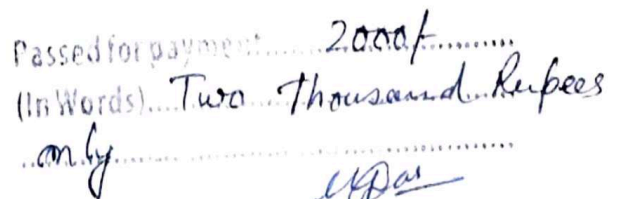 Passed for payment.....2000/-.....
(In Words)....Two Thousand Rupees
only